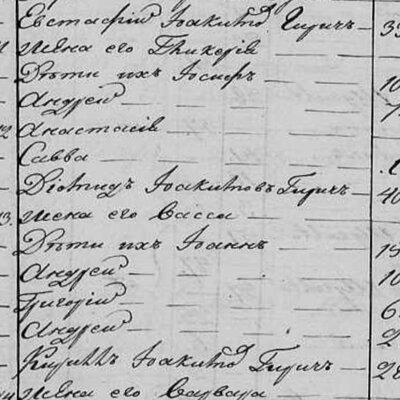 Евстафій Іоакимов Гиричъ 39
Жена его Гликерія
Дѣти ихъ Іосифъ 10
Андрей 7
12 Анастасія
Савва
Діомидъ Іоакимовъ Гиричъ 40
13 Жена его Васса
Дѣти ихъ Іоаннъ 15
Андрей 10
Григорій 6
Андрей 2
Кириллъ Іоакимов Гиричъ 28
Жена его Варвара